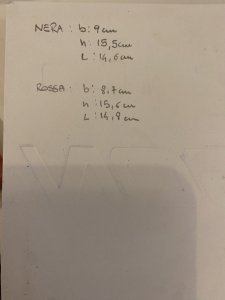 NERA : b: 9 cm
h: 15,5 cm
L: 14,6 cm
ROSSA : b: 8,7 cm
h: 15,6 cm
L: 14,9 cm